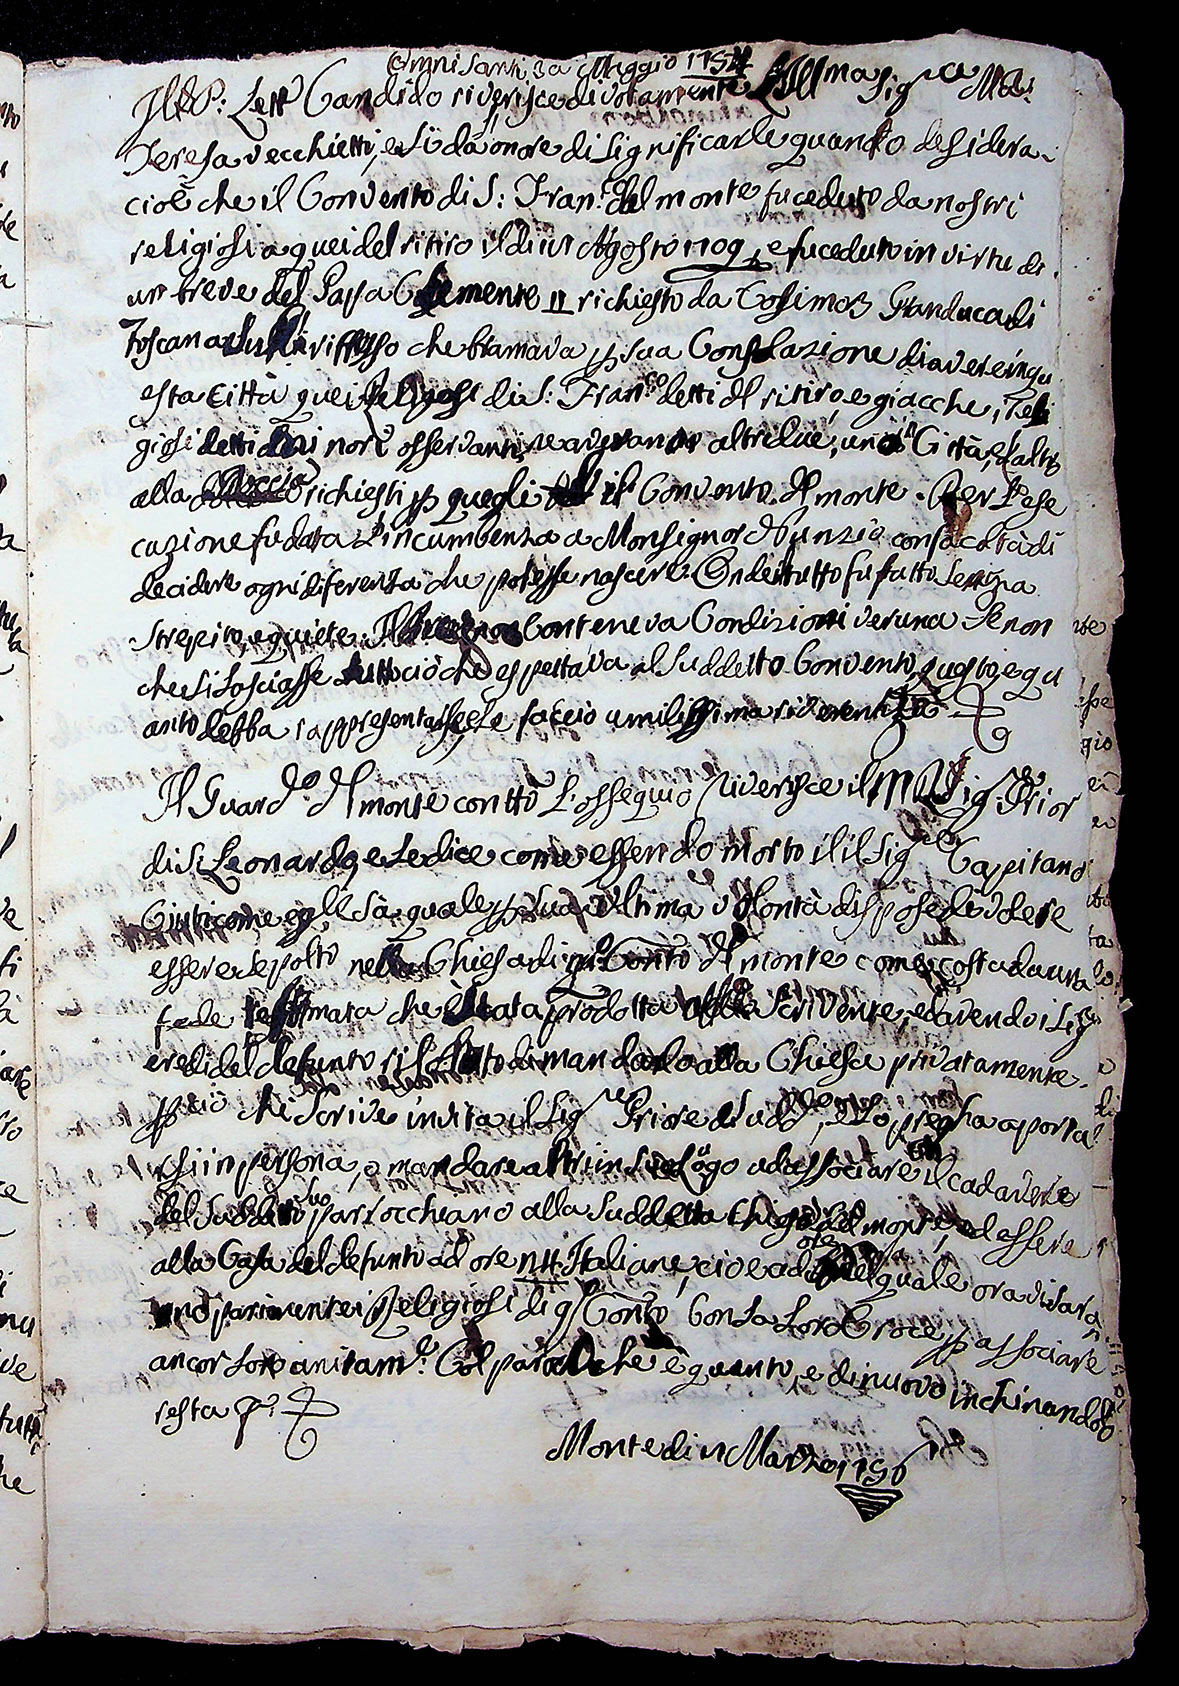 Ognisanti 30 Maggio 1754
Il P: Lett.r Candido riverisce divotamente l'Ill.ma Sig.ra M.a
Teresa Vecchietti, e si dà onore di significarle quando desidera.
cioè che il Convento di S: Fran.co del monte fu ceduto da nostri
religiosi a quei del ritiro il di Agosto 1709, e fu ceduto in virtu di
un breve del Papa Clemente 11 richiesto da Cosimo 3 Granduca di
Toscana sul riflesso che bramava p sua Consolazione di avere in qu
esta Città quei Religosi di S: Fran.co detti del ritiro, e giacche i reli
giosi detti di noi osservanti, ne avevano altri due, uno in Città, e l'altro
alla Doccia richiesti p quegli il Convento del monte. Per l'ese
cuzione fu data l'incumbenza a Monsignor Nunzio con facoltà di
decidere ogni diferenza che potesse nascere. Onde il tutto fu fatto senza
strepito, e quiete. Il Conteneva Condizioni veruna Se non
che si lasciasse tutto ciò che espettava al Suddetto Convento, questo, e qu
anto debba rappresentarle, e le faccio umilissima riverenza
Il Guard.o del monte con tto l'ossequio riverisce il Sig. Prior
di S: Leonardo, e le dice come essendo morto il Sig.re Capitano
Giusti come egli sà, quale p sua ultima volontà dispose di volere
essere sepolto nella Chiesa di q.o Conto del monte come costa da una
fede che è stata prodotta Scrivente, ed avendo i Sig.ri
eredi del defunto risoluto di mandarlo alla Chiesa privatamente.
p ciò chi scrive invita il Sig.re Priore Sudd.o, e lo pregha a portar
si in persona, o mandare altri in suo logo ad associare il cadavere
del Suddetto suo parrocchiano alla Suddetta Chiesa del monte, ed essere
alla Casa del defunto ad ore Italiane, cioè ad ore nel quale ora vi sara
nno parimente i Religiosi di q.o Conto Con la loro Croce p associare
ancor loro unitam.te Col paroche, e quanto, e di nuovo inchinandosi
resta P.
Monte di Marzo 1756